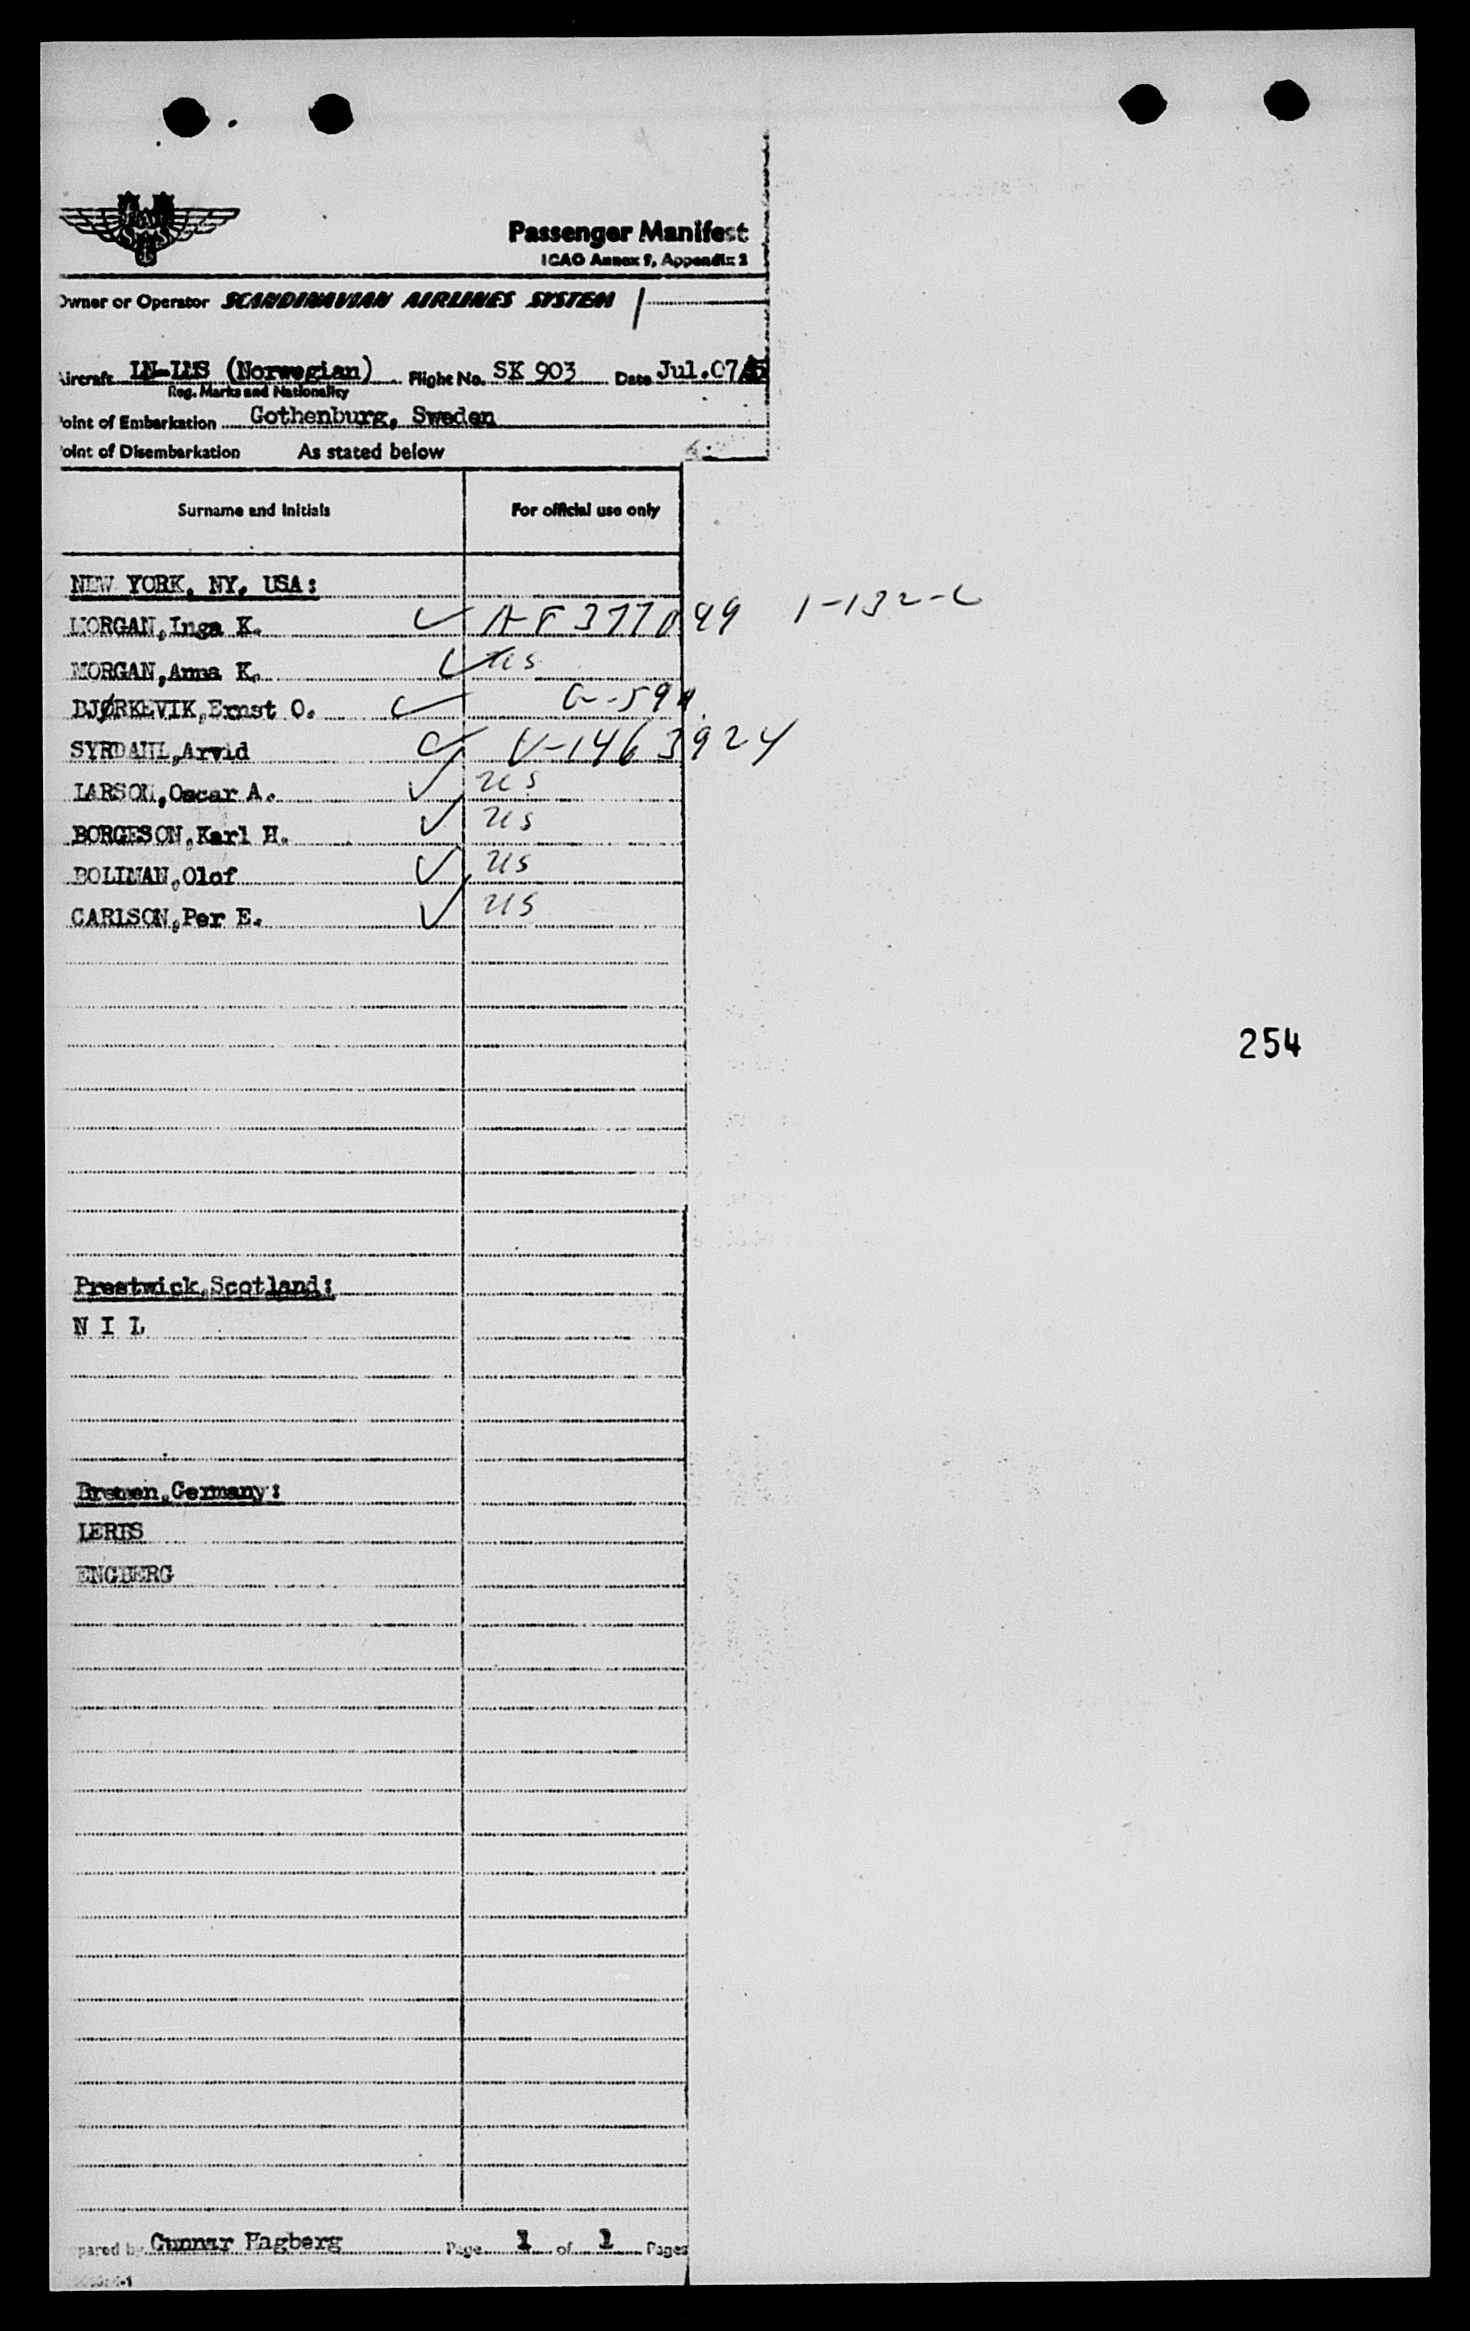 Passenger Manifest
ICAO Annex 9, Appendix 2
Owner or Operator SCANDINAVIAN AIRLINES SYSTEM /
Aircraft LN-LMS (Norwegian) Flight No. SK 903 Date Jul.07/5
Reg. Marks and Nationality
Point of Embarkation Gothenburg, Sweden
Point of Disembarkation As stated below
Surname and Initials For official use only
NEW YORK, NY, USA:
MORGAN, Inga K. 1-132-
MORGAN, Anna K. US
BJØRKEVIK, Ernst O.
SYRDAHL, Arvid V-1463924
LARSON, Oscar A. US
BORGESON, Karl H. US
BOLIMAN, Olof US
CARLSON, Per E. US
254
Prestwick, Scotland:
N I L
Bremen, Germany:
ENGBERG
Gunnar Hagberg Page 1 of 1 Pages